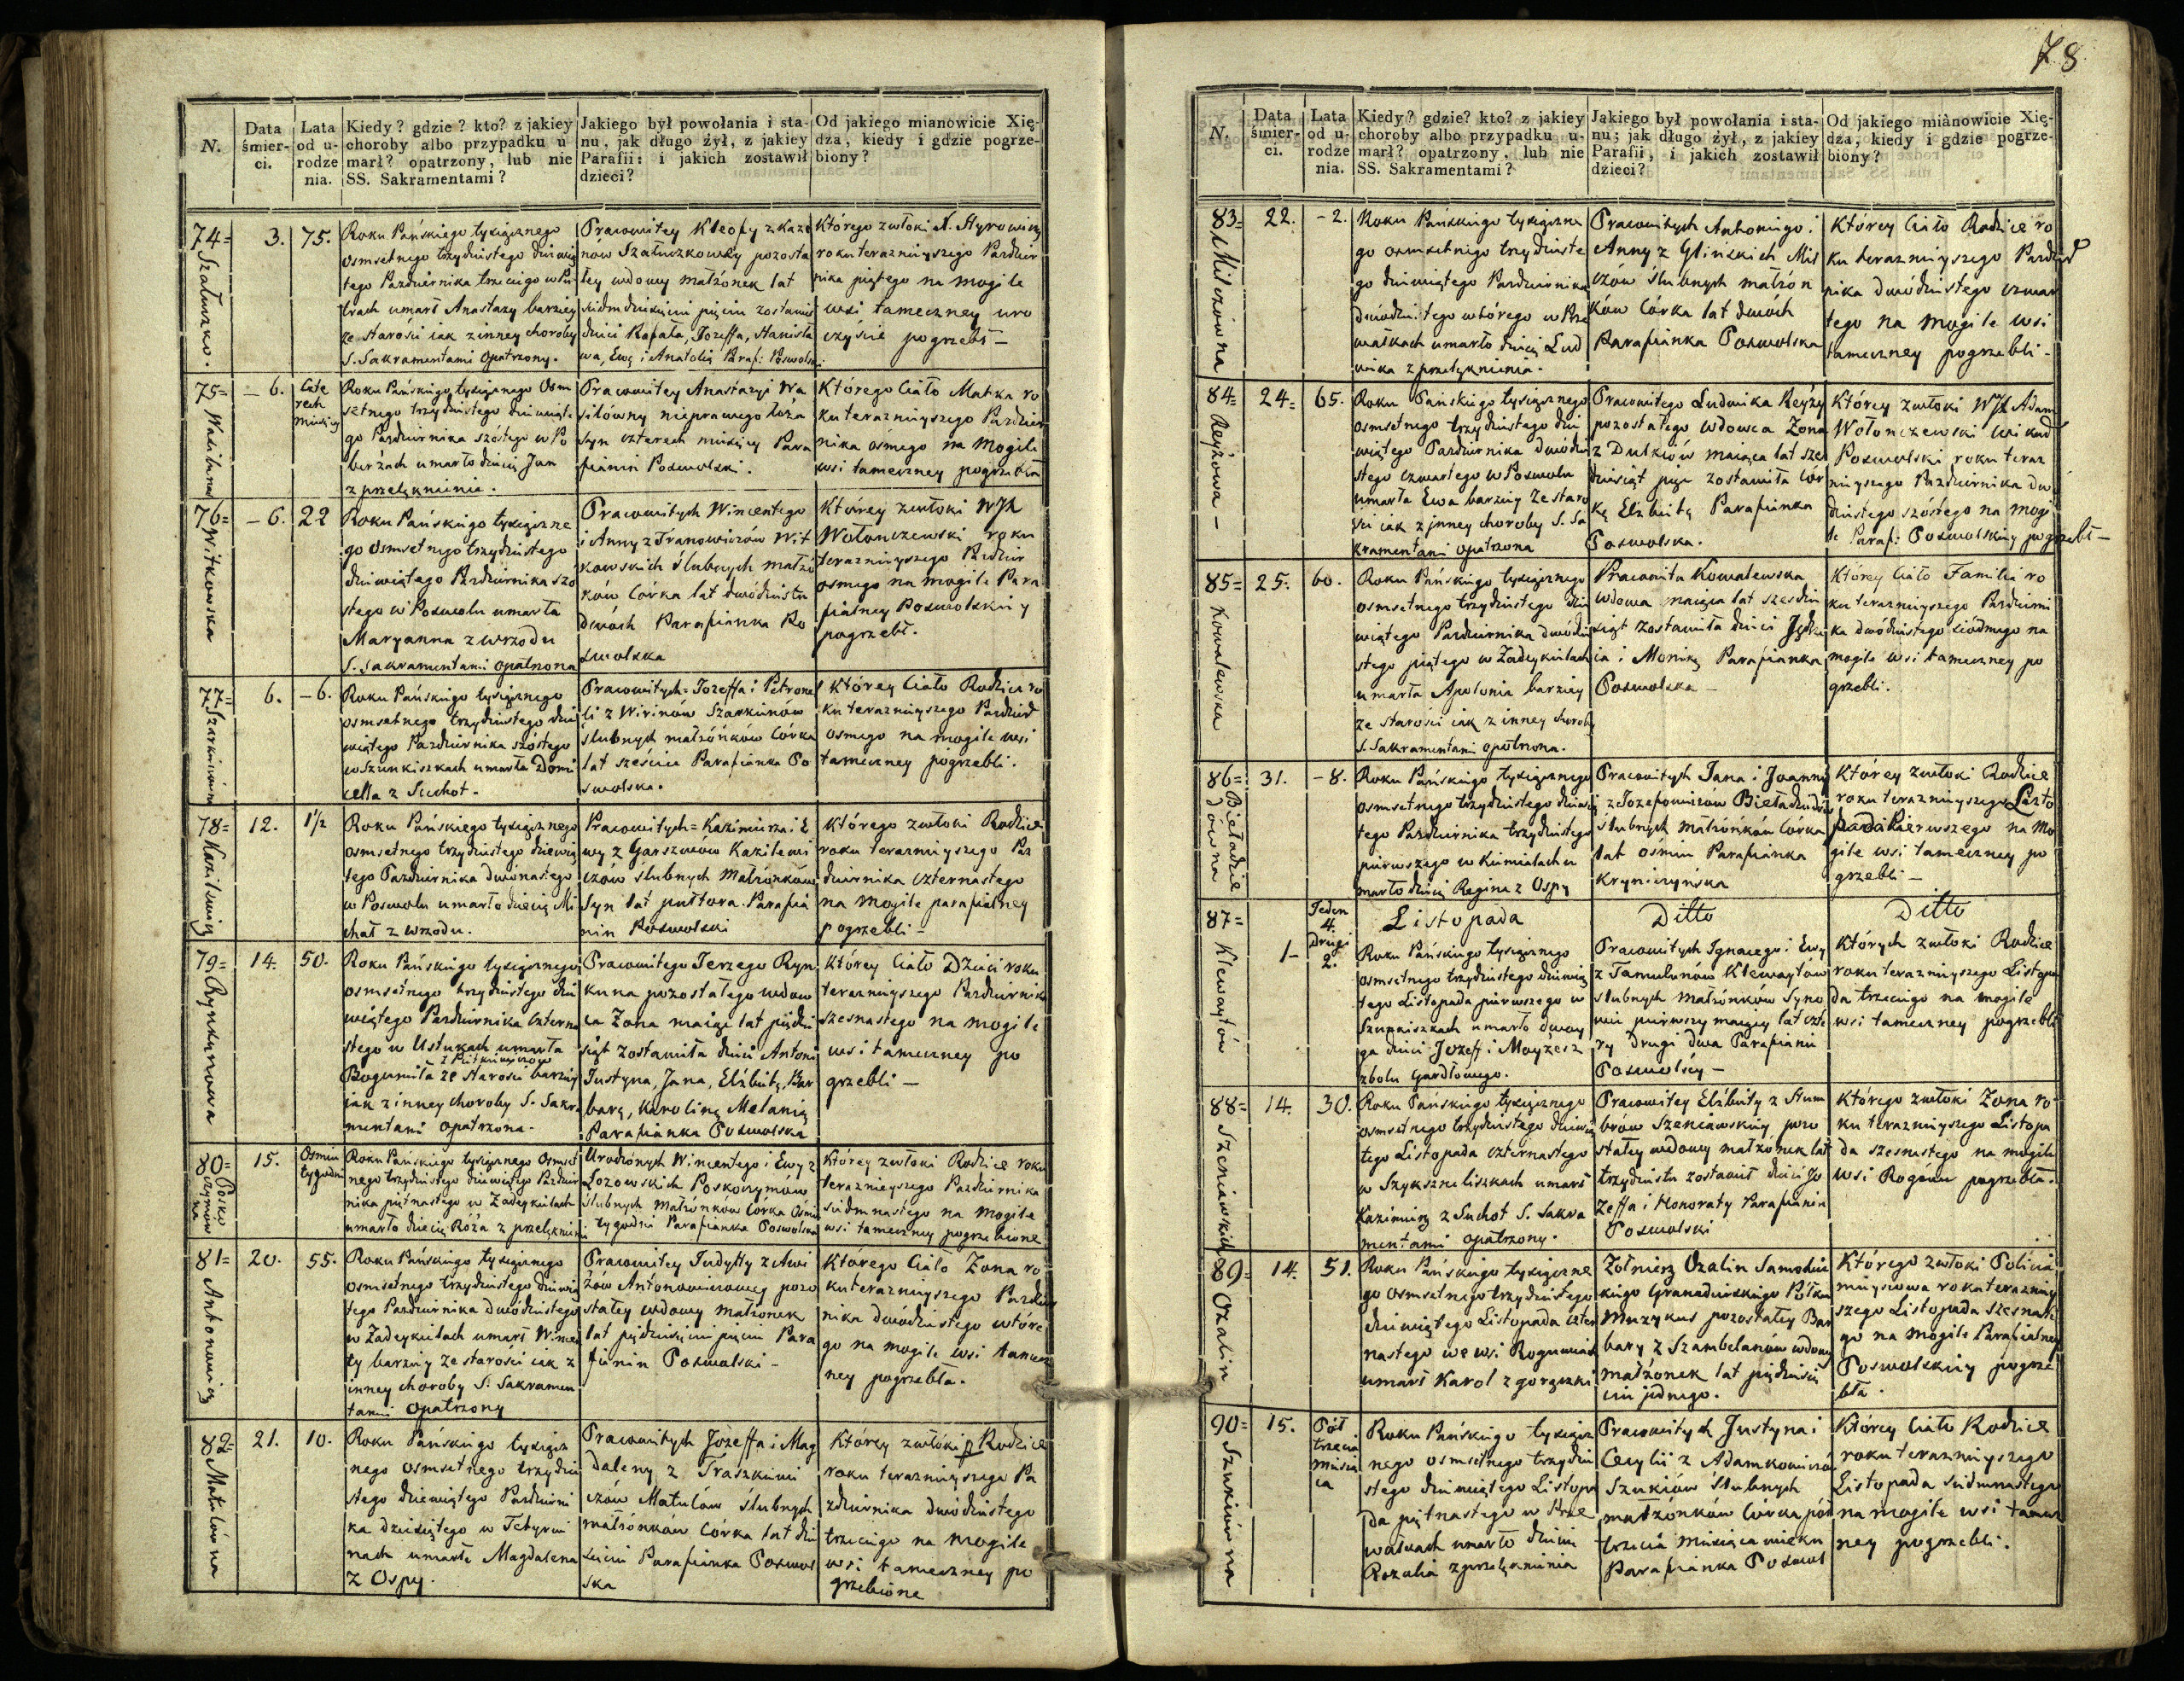 78
N.
Data śmierci.
Lata od urodzenia.
Kiedy? gdzie? kto? z jakiey
choroby albo przypadku u
marł? opatrzony, lub nie
SS. Sakramentami?
Jakiego był powołania i sta-
nu, jak długo żył, z jakiey
Parafii: i jakich zostawił
dzieci?
Od jakiego mianowicie Xię-
dza, kiedy i gdzie pogrze-
biony?
74=
Szałuszko.
3.
75.
Roku Pańskiego tysiącznego
osmsetnego trzydziestego dziewią
tego Pazdziernika trzeciego w
umarł Anastazy barziey
ze starości iak z inney choroby
S. Sakramentami opatrzony.
Pracowitey Kleofy z Kaza
nów Szałuszkowey pozosta
łey wdowy małżonek lat
siedmdziesiąt pięciu zostawił
dzieci Rafała, Jozeffa, Stanisła
wa, Ewę i Anatolią Paraf: Poswols:
Którego zwłoki X. Styrowicz
roku terazniejszego Pazdzier
nika piątego na mogile
wsi tameczney uro
czyście pogrzebł -
75=
- 6.
Czte
rech
miesięcy
Roku Pańskiego tysiącznego osm
setnego trzydziestego dziewiąte
go Pazdziernika szóstego w Po
berżach umarło dziecię Jan
z przelęknienia.
Pracowitey Anastazyi Wa
silówny nieprawego łoża
syn czterech miesięcy Para
fianin Poswolski.
Którego ciało Matka ro
ku terazniejszego Pazdzier
nika osmego na mogile
wsi tameczney pogrzebła
76=
Witkowska
- 6.
22
Roku Pańskiego tysiączne
go osmsetnego trzydziestego
dziewiątego Pazdziernika szo
stego w Poswolu umarła
Maryanna z wrzodu
S. Sakramentami opatrzona
Pracowitych Wincentego
i Anny z Iwanowiczów Wit
kowskich ślubnych małżo
ków córka lat dwódziestu
dwóch Parafianka Po
swolska
Którey zwłoki WJX
Wołonczewski roku
terazniejszego Pazdzier
osmego na mogile Para
fialney Poswolskiey
pogrzebł.
77=
6.
- 6.
Roku Pańskiego tysiącznego
osmsetnego trzydziestego dzie
wiątego Pazdziernika szóstego
w Szunkiszkach umarła Domi
cella z Suchot.
Pracowitych Jozeffa i Petrone
li z Wirinów Szarkunów
ślubnych małżonków córka
lat sześciu Parafianka Po
swolska.
Którey ciało Rodzice ro
ku terazniejszego Pazdzier
osmego na mogile wsi
tameczney pogrzebli.
78=
12.
1 1/2
Roku Pańskiego tysiącznego
osmsetnego trzydziestego dziewią
tego Pazdziernika dwónastego
w Poswolu umarło dziecię Mi
chał z wrzodu.
Pracowitych = Kazimierza i E
wy z Garszwow Kazilewi
czów ślubnych małżonków
Syn lat półtora. Parafia
nin Poswolski
Którego zwłoki Rodzice
roku terazniejszego Paz
dziernika czternastego
na mogile parafialney
pogrzebli -
79=
Rynkunowa
14.
50.
Roku Pańskiego tysiącznego
osmsetnego trzydziestego dzie
wiątego Pazdziernika czterna
stego w Ustukach umarła
Bogumiła ze starości barziey
iak z inney choroby S. Sakra
mentami opatrzona.
Pracowitego Jerzego Ryn
kuna pozostałego wdow
ca Zona maiąca lat pięćdzie
siąt zostawiła dzieci Antoni
Justyna, Jana, Elżbietę, Bar
barę, Karolinę Melanią
Parafianka Poswolska
Którey ciało Dzieci roku
terazniejszego Pazdziernika
szesnastego na mogile
wsi tameczney po
grzebli -
80=
15.
Osmiu
tygodni
Roku Pańskiego tysiącznego osmset
nego trzydziestego dziewiątego Pazdzier
nika piętnastego w Zadeykielach
umarło dziecię Róża z przelęknieni
Urodzonych Wincentego i Ewy z
Łozowskich Poskoczymów
ślubnych małżonków córka osmiu
tygodni Parafianka Poswolska
Którey zwłoki Rodzice roku
terazniejszego Pazdziernika
siedmnastego na mogile
wsi tameczney pogrzebione
81=
Antonowicz
20.
55.
Roku Pańskiego tysiącznego
osmsetnego trzydziestego dziewią
tego Pazdziernika dwódziestego
w Zadeykielach umarł Wincen
ty barziey ze starości iak z
inney choroby S. Sakramen
tami opatrzony
Pracowitey Judyffy z Awi
żów Antonowiczowey pozo
stałey wdowy małżonek
lat pięćdziesięciu pięciu Para
fianin Poswolski -
Którego ciało Żona ro
ku terazniejszego Pazdzier
nika dwódziestego wtóre
go na mogile wsi tamecz
ney pogrzebła.
82=
Matulówna
21.
10.
Roku Pańskiego tysiącz
nego osmsetnego trzydzie
stego dziewiątego Pazdzierni
ka dzieśiątego w Tetyrwi
nach umarła Magdalena
z Ospy.
Pracowitych Jozeffa i Mag
daleny z Traszkiewi
czów Matulów ślubnych
małżonków córka lat dzie
sięciu Parafianka Poswol
ska
Którey zwłoki Rodzice
roku terazniejszego Pa
zdziernika dwódziestego
trzeciego na mogile
wsi tameczney po
grzebione
N.
Data śmierci.
Lata od urodzenia.
Kiedy? gdzie? kto? z jakiey
choroby albo przypadku u-
marł? opatrzony, lub nie
SS. Sakramentami?
Jakiego był powołania i sta-
nu; jak długo żył, z jakiey
Parafii, i jakich zostawił
dzieci?
Od jakiego miànowicie Xię-
dza, kiedy i gdzie pogrze-
biony?
83=
Milczówna
22.
- 2.
Roku Pańskiego tysiączne
go osmsetnego trzydzieste
go dziewiątego Pazdziernika
dwódziestego wtórego w Prze
wałkach umarło dziecię Lud
wika z przelęknienia.
Pracowitych Antoniego i
Anny z Glińskich Mil
czów ślubnych małżon
ków córka lat dwóch
Parafianka Poswolska
Którey ciało Rodzice ro
ku terazniejszego Pazdzier
nika dwódziestego czwar
tego na mogile wsi
tameczney pogrzebli -
84=
Reyżowa -
24=
65.
Roku Pańskiego tysiącznego
osmsetnego trzydziestego dzie
wiątego Pazdziernika dwódzie
stego czwartego w Poswolu
umarła Ewa barziey ze staro
ści iak z inney choroby S. Sa
kramentami opatrzona
Pracowitego Ludwika Reyży
pozostałego wdowca Żona
z Dulkiów maiąca lat szes
dziesiąt pięć zostawiła cór
kę Elżbietę Parafianka
Poswolska.
Którey zwłoki WJX Adam
Wołonczewski Wikar
Poswolski roku teraz
niejszego Pazdziernika dwó
dziestego szóstego na mogi
le Paraf: Poswolskiey pogrzebł -
85=
Kowalewska
25.
60.
Roku Pańskiego tysiącznego
osmsetnego trzydziestego dzie
wiątego Pazdziernika dwódzie
stego piątego w Zadeykielach
umarła Apolonia barziey
ze starości iak z inney choroby
S. Sakramentami opatrzona.
Pracowita Kowalewska
Wdowa maiąca lat szesdzie
siąt zostawiła dzieci Jędrze
ia i Monikę Parafianka
Poswolska -
Którey ciało Familia ro
ku terazniejszego Pazdzierni
ka dwódziestego siódmego na
mogile wsi tameczney po
grzebli.
86=
31.
- 8.
Roku Pańskiego tysiącznego
osmsetnego trzydziestego dziewią
tego Pazdziernika trzydziestego
pierwszego w Kumialach u
marło dziecię Regina z Ospy
Pracowitych Jana i Joanny
z Jozefowiczów
ślubnych małżonków córka
lat ośmiu Parafianka
Kryniczyńska
Którey zwłoki Rodzice
roku terazniejszego Listo
pada Pierwszego na mo
gile wsi tameczney po
grzebli -
87=
Klewaytów
1-
Jeden
4.
drugi
2.
Listopada
Roku Pańskiego tysiącznego
osmsetnego trzydziestego dziewią
tego Listopada pierwszego w
umarło dwoy
ga dzieci Jozeff i Moyżesz
z bolu gardłowego.
Ditto
Pracowitych Ignacego i Ewy
z Tamulanów Klewaytów
ślubnych małżonków Syno
wie pierwszy maiący lat czte
ry drugi dwa Parafianie
Poswolscy -
Ditto
Których zwłoki Rodzice
roku terazniejszego Listopa
da trzeciego na mogile
wsi tameczney pogrzebli
88=
14.
30.
Roku Pańskiego tysiącznego
osmsetnego trzydziestego dziewią
tego Listopada czternastego
w Szykszneliszkach umarł
Kazimierz z Suchot S. Sakra
mentami opatrzony.
Pracowitey Elżbiety z Stum
brów Szeniawskiey pozo
stałey wdowy małżonek lat
trzydziestu zostawił dzieci Jo
zeffa i Honoraty Parafianin
Poswolski
Którego zwłoki Żona ro
ku terazniejszego Listopa
da szesnastego na mogile
wsi Rogówu pogrzebła.
89=
Ozalin
14.
51.
Roku Pańskiego tysiączne
go osmsetnego trzydziestego
dziewiątego Listopada czter
nastego we wsi
umarł Karol z gorączki
Żołnierz Ozalin Samohic
kiego Granadierskiego Półku
Muzykus pozostałey Bar
bary z Szambelanów wdowy
małżonek lat pięćdziesię
ciu jednego.
Którego zwłoki Policia
mieyscowa roku teraznie
szego Listopada szesnaste
go na mogile Parafialney
Poswolskiey pogrze
bła.
90=
Szukiówna
15.
Pół
trzecia
miesią
ca
Roku Pańskiego tysiącz
nego osmsetnego trzydzie
stego dziewiątego Listopa
da piętnastego w Prze
wałkach umarło dziecię
Rozalia z przelęknienia
Pracowitych Justyna i
Cecylii z Adamkowiczów
Szukiów ślubnych
małżonków córka pół
trzecia miesiąca wieku
Parafianka Poswol
Którey ciało Rodzice
roku terazniejszego
Listopada siedmnastego
na mogile wsi tamecz
ney pogrzebli.